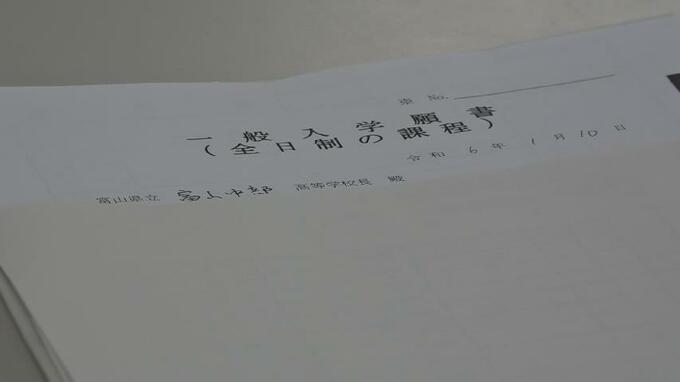 ※ No.
一般入学願書
(全日制の課程)
令和 6 年 1 月 10 日
富山県立 富山中部 高等学校長 殿